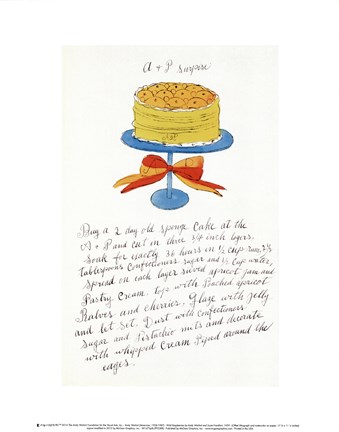 A & P Surprise
Buy a 2 day old sponge cake at the
A & P and cut in three 3/4 inch layers.
Soak for exactly 36 hours in 1/2 cup rum, 2 1/2
tablespoons confectioners sugar and 1/2 cup water,
spread on each layer sieved apricot jam and
Pastry Cream. top with Poached apricot
Halves and cherries. Glaze with jelly
and let set. Dust with confectioners
sugar and Pistachio nuts and decorate
with whipped Cream Piped around the
eages.